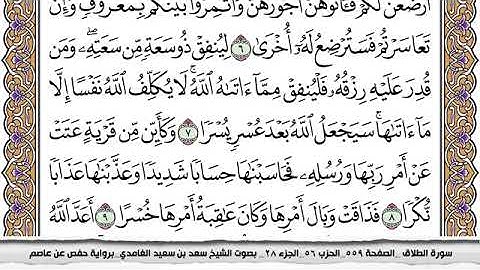 أَرۡضَعۡنَ لَكُمۡ فَـَٔاتُوهُنَّ أُجُورَهُنَّ وَأۡتَمِرُواْ بَيۡنَكُم بِمَعۡرُوفٖۖ وَإِن
تَعَاسَرۡتُمۡ فَسَتُرۡضِعُ لَهُۥٓ أُخۡرَىٰ ٦ لِيُنفِقۡ ذُو سَعَةٖ مِّن سَعَتِهِۦۖ وَمَن
قُدِرَ عَلَيۡهِ رِزۡقُهُۥ فَلۡيُنفِقۡ مِمَّآ ءَاتَىٰهُ ٱللَّهُۚ لَا يُكَلِّفُ ٱللَّهُ نَفۡسًا إِلَّا
مَآ ءَاتَىٰهَاۚ سَيَجۡعَلُ ٱللَّهُ بَعۡدَ عُسۡرٖ يُسۡرٗا ٧ وَكَأَيِّن مِّن قَرۡيَةٍ عَتَتۡ
عَنۡ أَمۡرِ رَبِّهَا وَرُسُلِهِۦ فَحَاسَبۡنَٰهَا حِسَابٗا شَدِيدٗا وَعَذَّبۡنَٰهَا عَذَابٗا
نُّكۡرٗا ٨ فَذَاقَتۡ وَبَالَ أَمۡرِهَا وَكَانَ عَٰقِبَةُ أَمۡرِهَا خُسۡرًا ٩ أَعَدَّ ٱللَّهُ
سورة الطلاق _الصفحة ٥٥٩_ الحزب ٥٦_ الجزء ٢٨_ بصوت الشيخ سعد بن سعيد الغامدي_برواية حفص عن عاصم